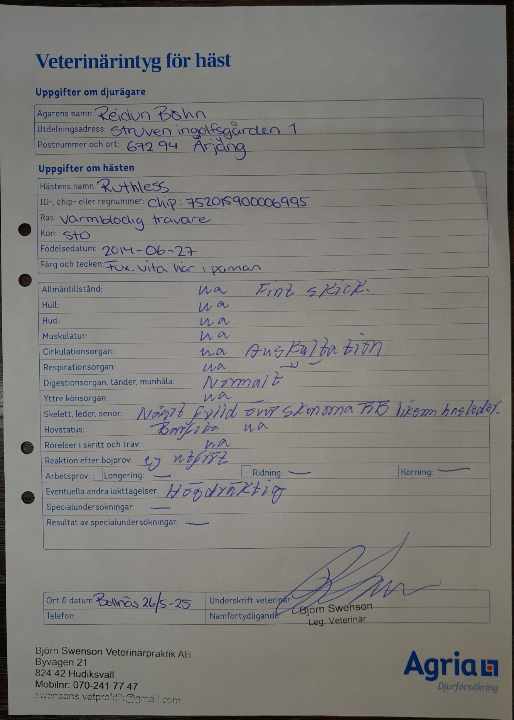 Veterinärintyg för häst
Uppgifter om djurägare
Ägarens namn: Reidun Bohn
Utdelningsadress: Struven ingolfsgården 1
Postnummer och ort: 672 94 Årjäng
Uppgifter om hästen
Hästens namn: Ruthless
ID-, chip- eller regnummer: Chip: 752015900006995
Ras: Varmblodig travare
Kön: Sto
Födelsedatum: 2014-06-27
Färg och tecken: Fux. vita hår i pannan
Allmäntillstånd: ua Fint skick.
Hull: ua
Hud: ua
Muskulatur: ua
Cirkulationsorgan: ua Auskultation
Respirationsorgan: ua
Digestionsorgan, tänder, munhåla: Normalt
Yttre könsorgan: ua
Skelett, leder, senor: Något fylld över skenorna liksom hasleder.
Hovstatus: Barfota ua
Rörelser i skritt och trav: ua
Reaktion efter böjprov: ej utfört
Arbetsprov: Longering: — Ridning: — Körning: —
Eventuella andra iakttagelser: Högdräktig
Specialundersökningar: —
Resultat av specialundersökningar: —
Ort & datum: 26/5-25 Underskrift veterinär:
Telefon: Namnförtydligande:
Björn Swenson
Leg. Veterinär
Björn Swenson Veterinärpraktik AB
Byvägen 21
824 42 Hudiksvall
Mobilnr: 070-241 77 47
swensons.vetpraktik@gmail.com
Agria
Djurförsäkring